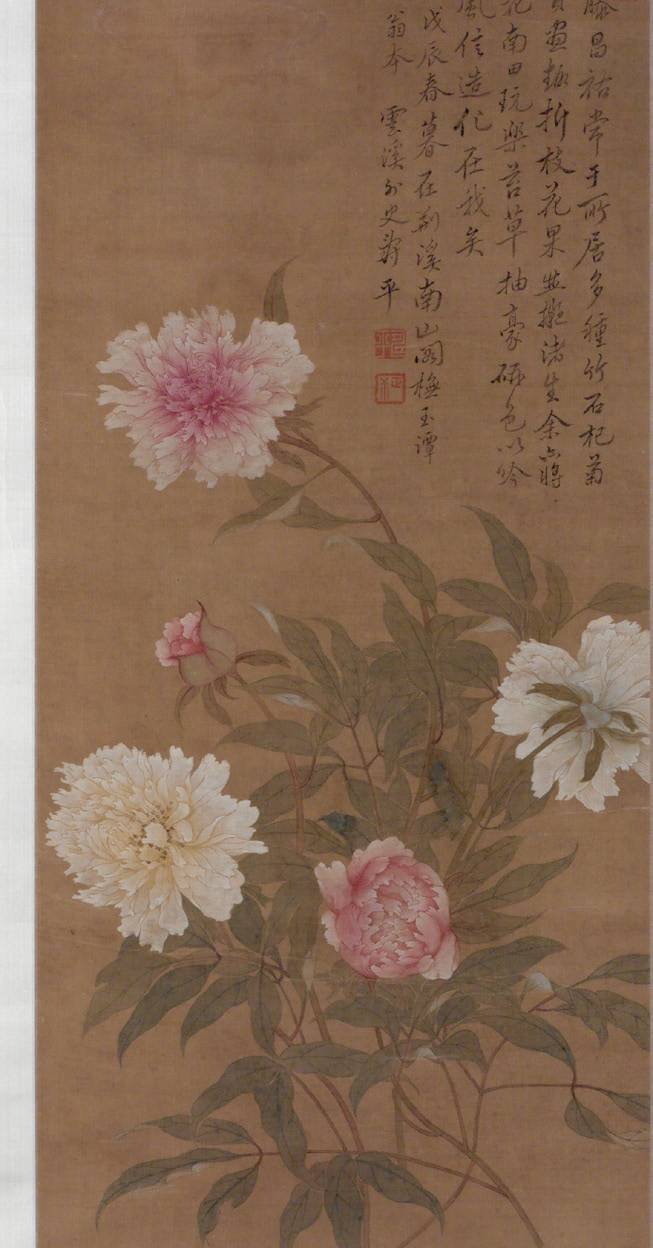 滕昌祐常于所居多種竹石杞菊
畫趣折枝花果並擬諸生余亦將
花南田玩樂苔草抽豪研色以吟
風信造化在我矣
戊辰春暮在荊溪南山閣橅玉潭
翁本 雲溪外史壽平